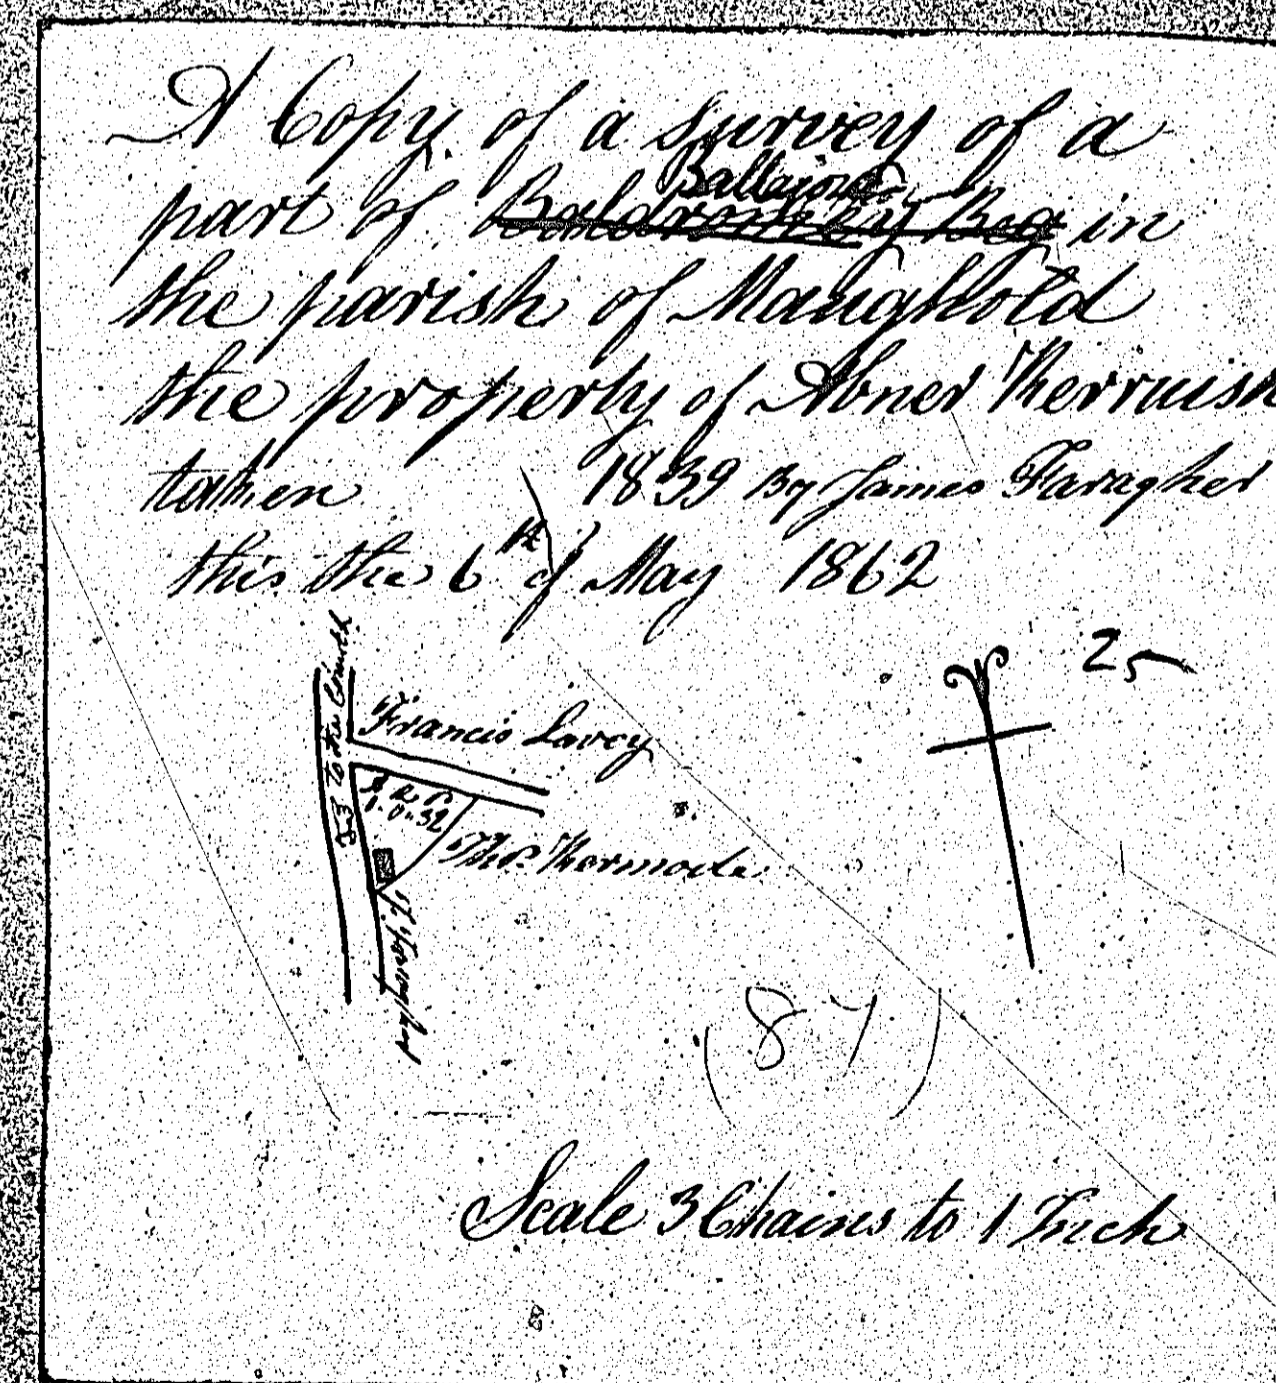 A Copy of a Survey of a
part of Ballajora in
the parish of Maughold
the property of Abner Kerruish
taken 1839 By James Faragher
this the 6th of May 1862
25
to the Church
Francis Lavey
A. R. P.
0.0.32
Thos. Kermode
Faragher
(87)
Scale 3 Chains to 1 Inch